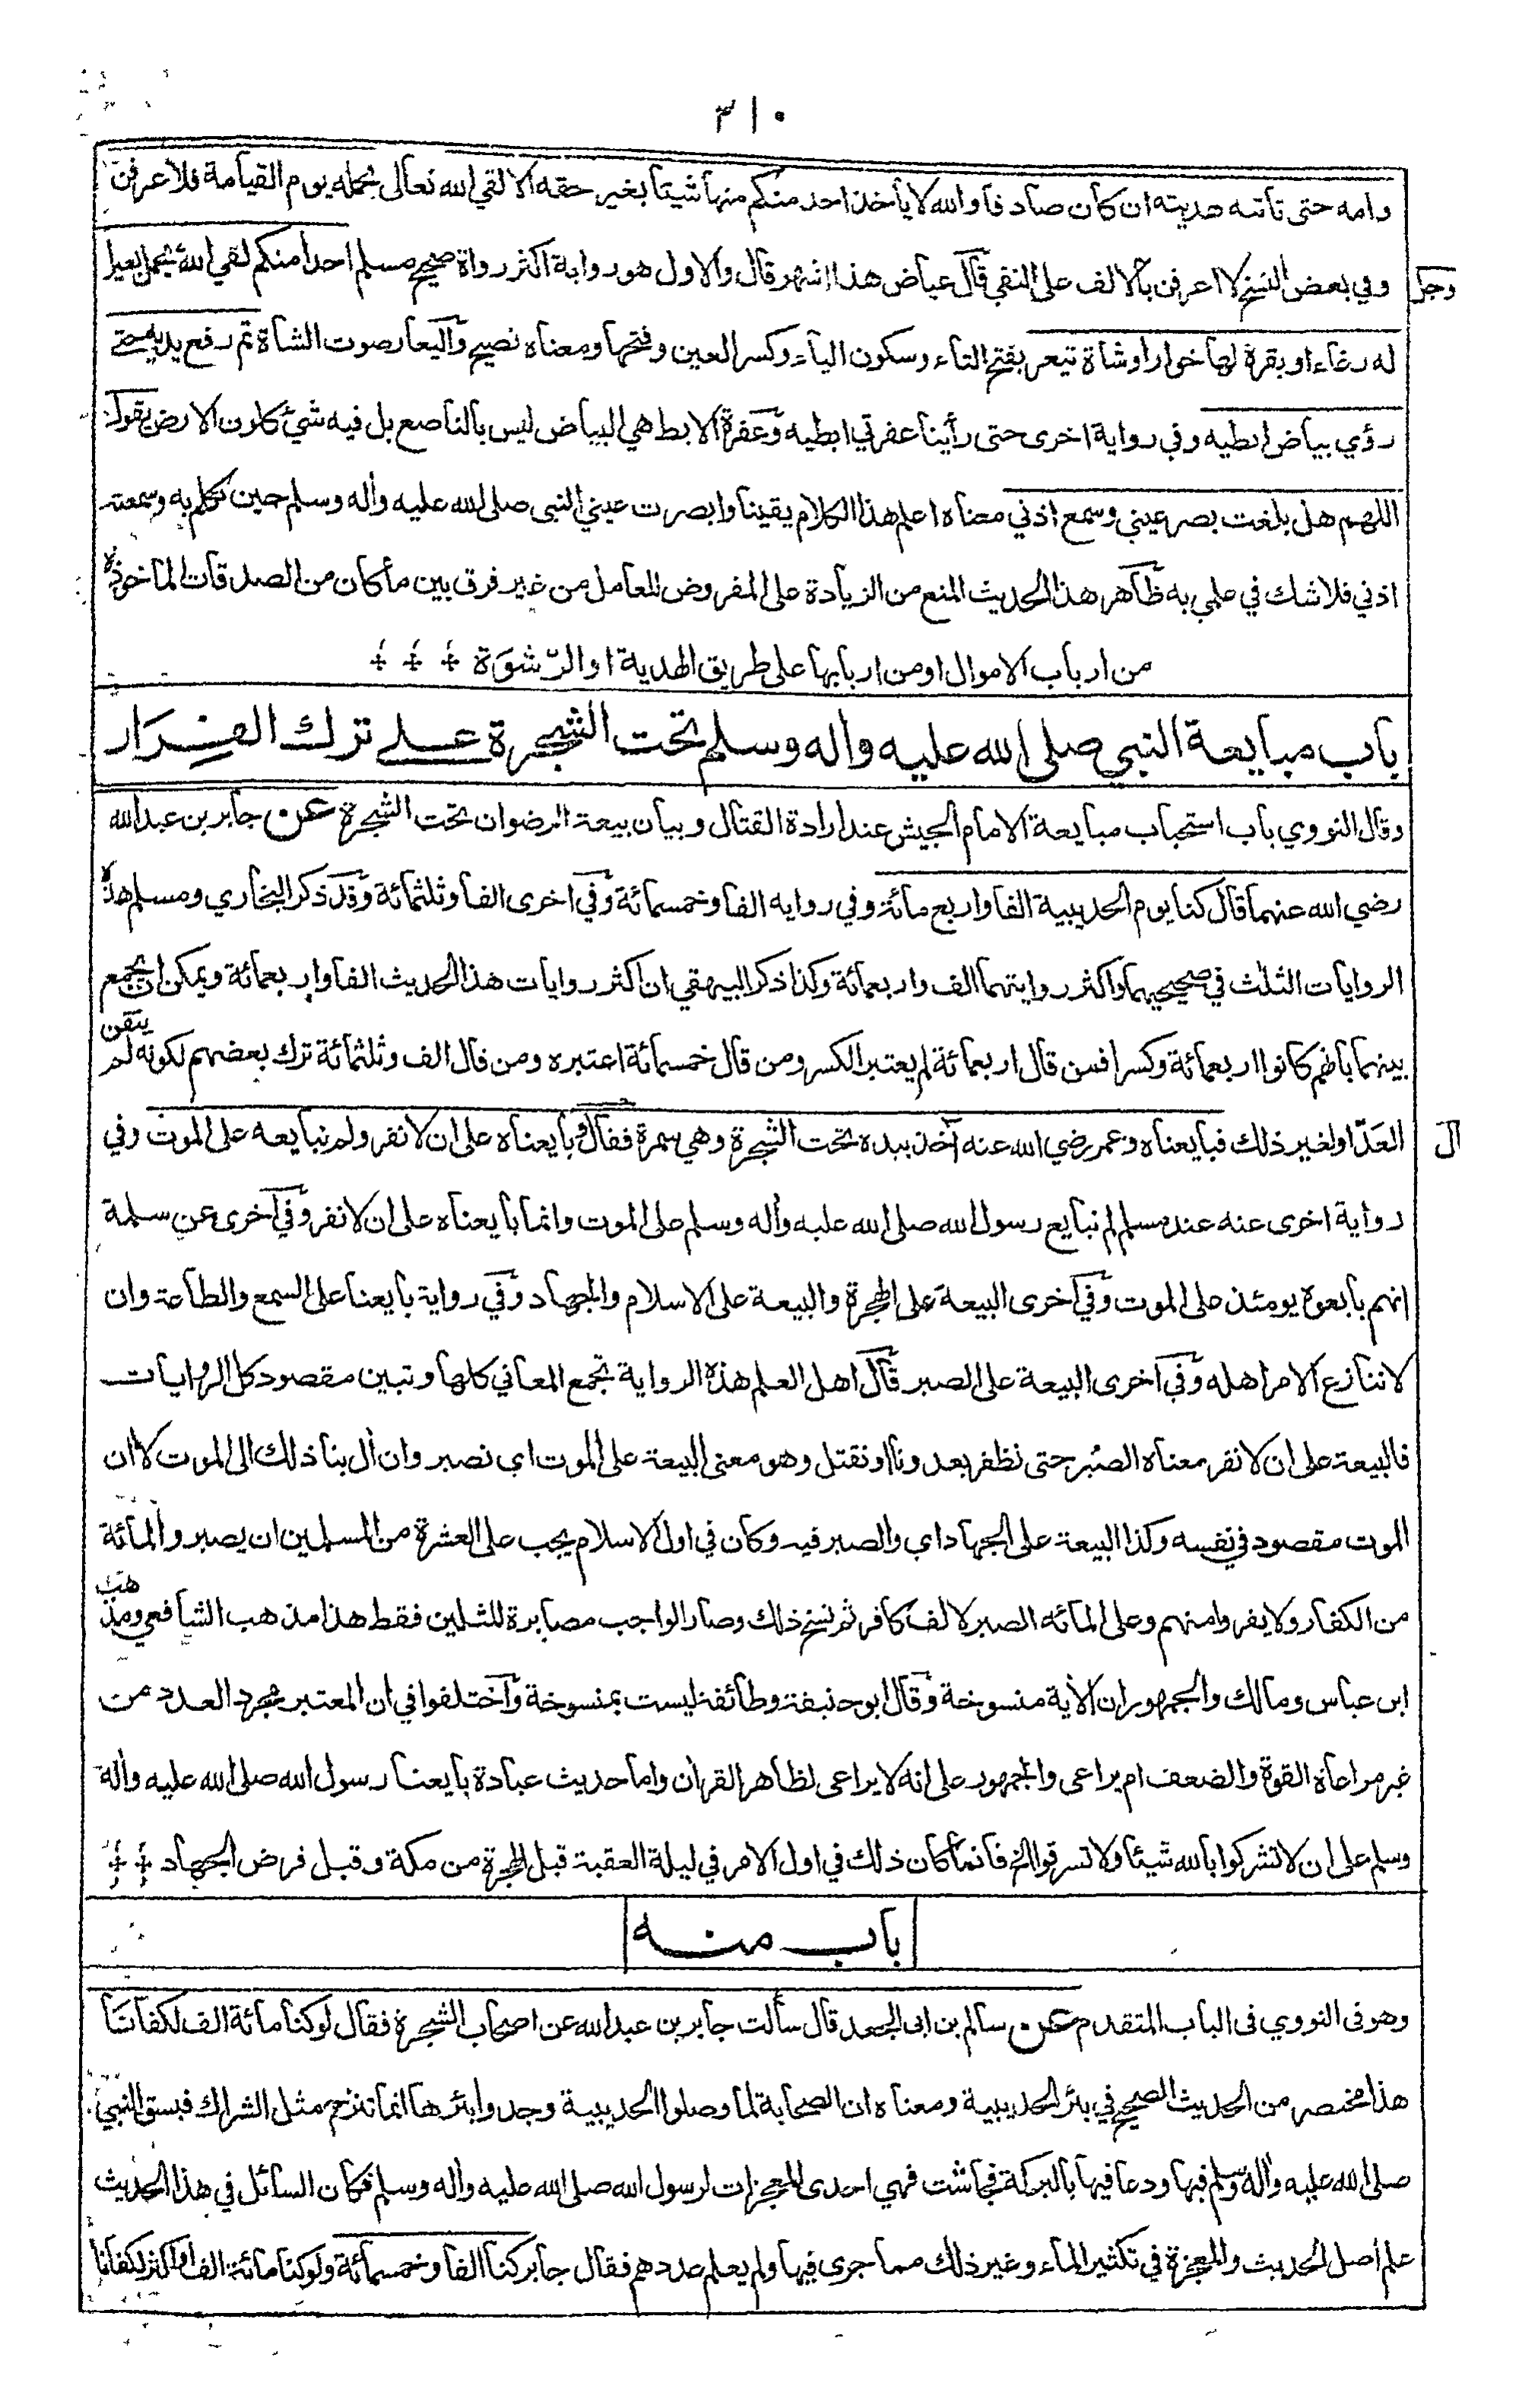 ٣١٠
وامه حتى تأتيه هديته ان كان صادقا والله لا يأخذ احد منكم منها شيئا بغير حقه الا لقي الله تعالى يحمله يوم القيامة فلا عرفن
وفي بعض النسخ لا اعرفن بالالف على النفي قال عياض هذا اشهر قال والاول هو رواية اكثر رواة صحيح مسلم احدا منكم لقي الله يحمل بعيرا
وجل
له رغاء او بقرة لها خوار او شاة تيعر بفتح التاء وسكون الياء وكسر العين وفتحها ومعناه تصيح واليعار صوت الشاة ثم رفع يديه حتى
رؤي بياض ابطيه وفي رواية اخرى حتى رأينا عفرتي ابطيه وعفرة الابط هي البياض ليس بالناصع بل فيه شيئ كلون الارض يقول
اللهم هل بلغت بصر عيني وسمع اذني معناه اعلم هذا الكلام يقينا وابصرت عيني النبي صلى الله عليه واله وسلم حين تكلم به وسمعته
اذني فلا شك في علمي به ظاهر هذا الحديث المنع من الزيادة على المفروض للعامل من غير فرق بين ما كان من الصدقات المأخوذة
من ارباب الاموال او من اربابها على طريق الهدية او الرّشوَة
باب مبايعة النبي صلى الله عليه واله وسلم تحت الشجرة على ترك الفِرَار
وقال النووي باب استحباب مبايعة الامام الجيش عند ارادة القتال وبيان بيعة الرضوان تحت الشجرة عن جابر بن عبد الله
رضي الله عنهما قال كنا يوم الحديبية الفا واربع مائة وفي رواية الفا وخمسمائة وفي اخرى الفا وثلثمائة وقد ذكر البخاري ومسلم هذه
الروايات الثلث في صحيحيهما واكثر روايتهما الف واربعمائة وكذا ذكر البيهقي ان اكثر روايات هذا الحديث الفا واربعمائة ويمكن ان يجمع
بينهما بانهم كانوا اربعمائة وكسرا فمن قال اربعمائة لم يعتبر الكسر ومن قال خمسمائة اعتبره ومن قال الف وثلثمائة ترك بعضهم لكونه لم يتقن
العَدّ او لغير ذلك فبايعناه وعمر رضي الله عنه آخذ بيده تحت الشجرة وهي سمرة فقال وبايعناه على ان لا نفر ولم نبايعه على الموت وفي
ال
رواية اخرى عنه عند مسلم لم نبايع رسول الله صلى الله عليه واله وسلم على الموت وانما بايعناه على ان لا نفر وفي اخرى عن سلمة
انهم بايعوه يومئذ على الموت وفي اخرى البيعة على الهجرة والبيعة على الاسلام والجهاد وفي رواية بايعنا على السمع والطاعة وان
لا ننازع الامر اهله وفي اخرى البيعة على الصبر قال اهل العلم هذه الرواية تجمع المعاني كلها وتبين مقصود كل الروايات
فالبيعة على ان لا نفر معناه الصبر حتى نظفر بعدونا او نقتل وهو معنى البيعة على الموت اي نصبر وان أل بنا ذلك الى الموت لا ان
الموت مقصود في نفسه وكذا البيعة على الجهاد اي والصبر فيه وكان في اول الاسلام يجب على العشرة من المسلمين ان يصبروا لمائة
من الكفار ولا يفروا منهم وعلى المائة الصبر لالف كافر ثم نسخ ذلك وصار الواجب مصابرة للثلين فقط هذا مذهب الشافعي ومذهب
ابن عباس ومالك والجمهور ان الأية منسوخة وقال ابو حنيفة وطائفة ليست بمنسوخة واختلفوا في ان المعتبر مجرد العدد من
غير مراعاة القوة والضعف ام يراعى والجمهور على انه لا يراعى لظاهر القرأن واما حديث عبادة بايعنا رسول الله صلى الله عليه واله
وسلم على ان لا تشركوا بالله شيئا ولا تسرقوا الخ فانما كان ذلك في اول الامر في ليلة العقبة قبل الهجرة من مكة وقبل فرض الجهاد
باب منه
وهو في النووي في الباب المتقدم عن سالم بن ابي الجعد قال سألت جابر بن عبد الله عن اصحاب الشجرة فقال لو كنا مائة الف لكفانا
هذا مختصر من الحديث الصحيح في بئر الحديبية ومعناه ان الصحابة لما وصلوا الحديبية وجدوا بئرها انما تنزح مثل الشراك فبسق النبي
صلى الله عليه واله وسلم فيها ودعا فيها بالبركة فجاشت فهي احدى المعجزات لرسول الله صلى الله عليه واله وسلم فكان السائل في هذا الحديث
علم اصل الحديث والمعجزة في تكثير الماء وغير ذلك مما جرى فيها ولم يعلم عددهم فقال جابر كنا الفا وخمسمائة ولو كنا مائة الف او اكثر لكفانا